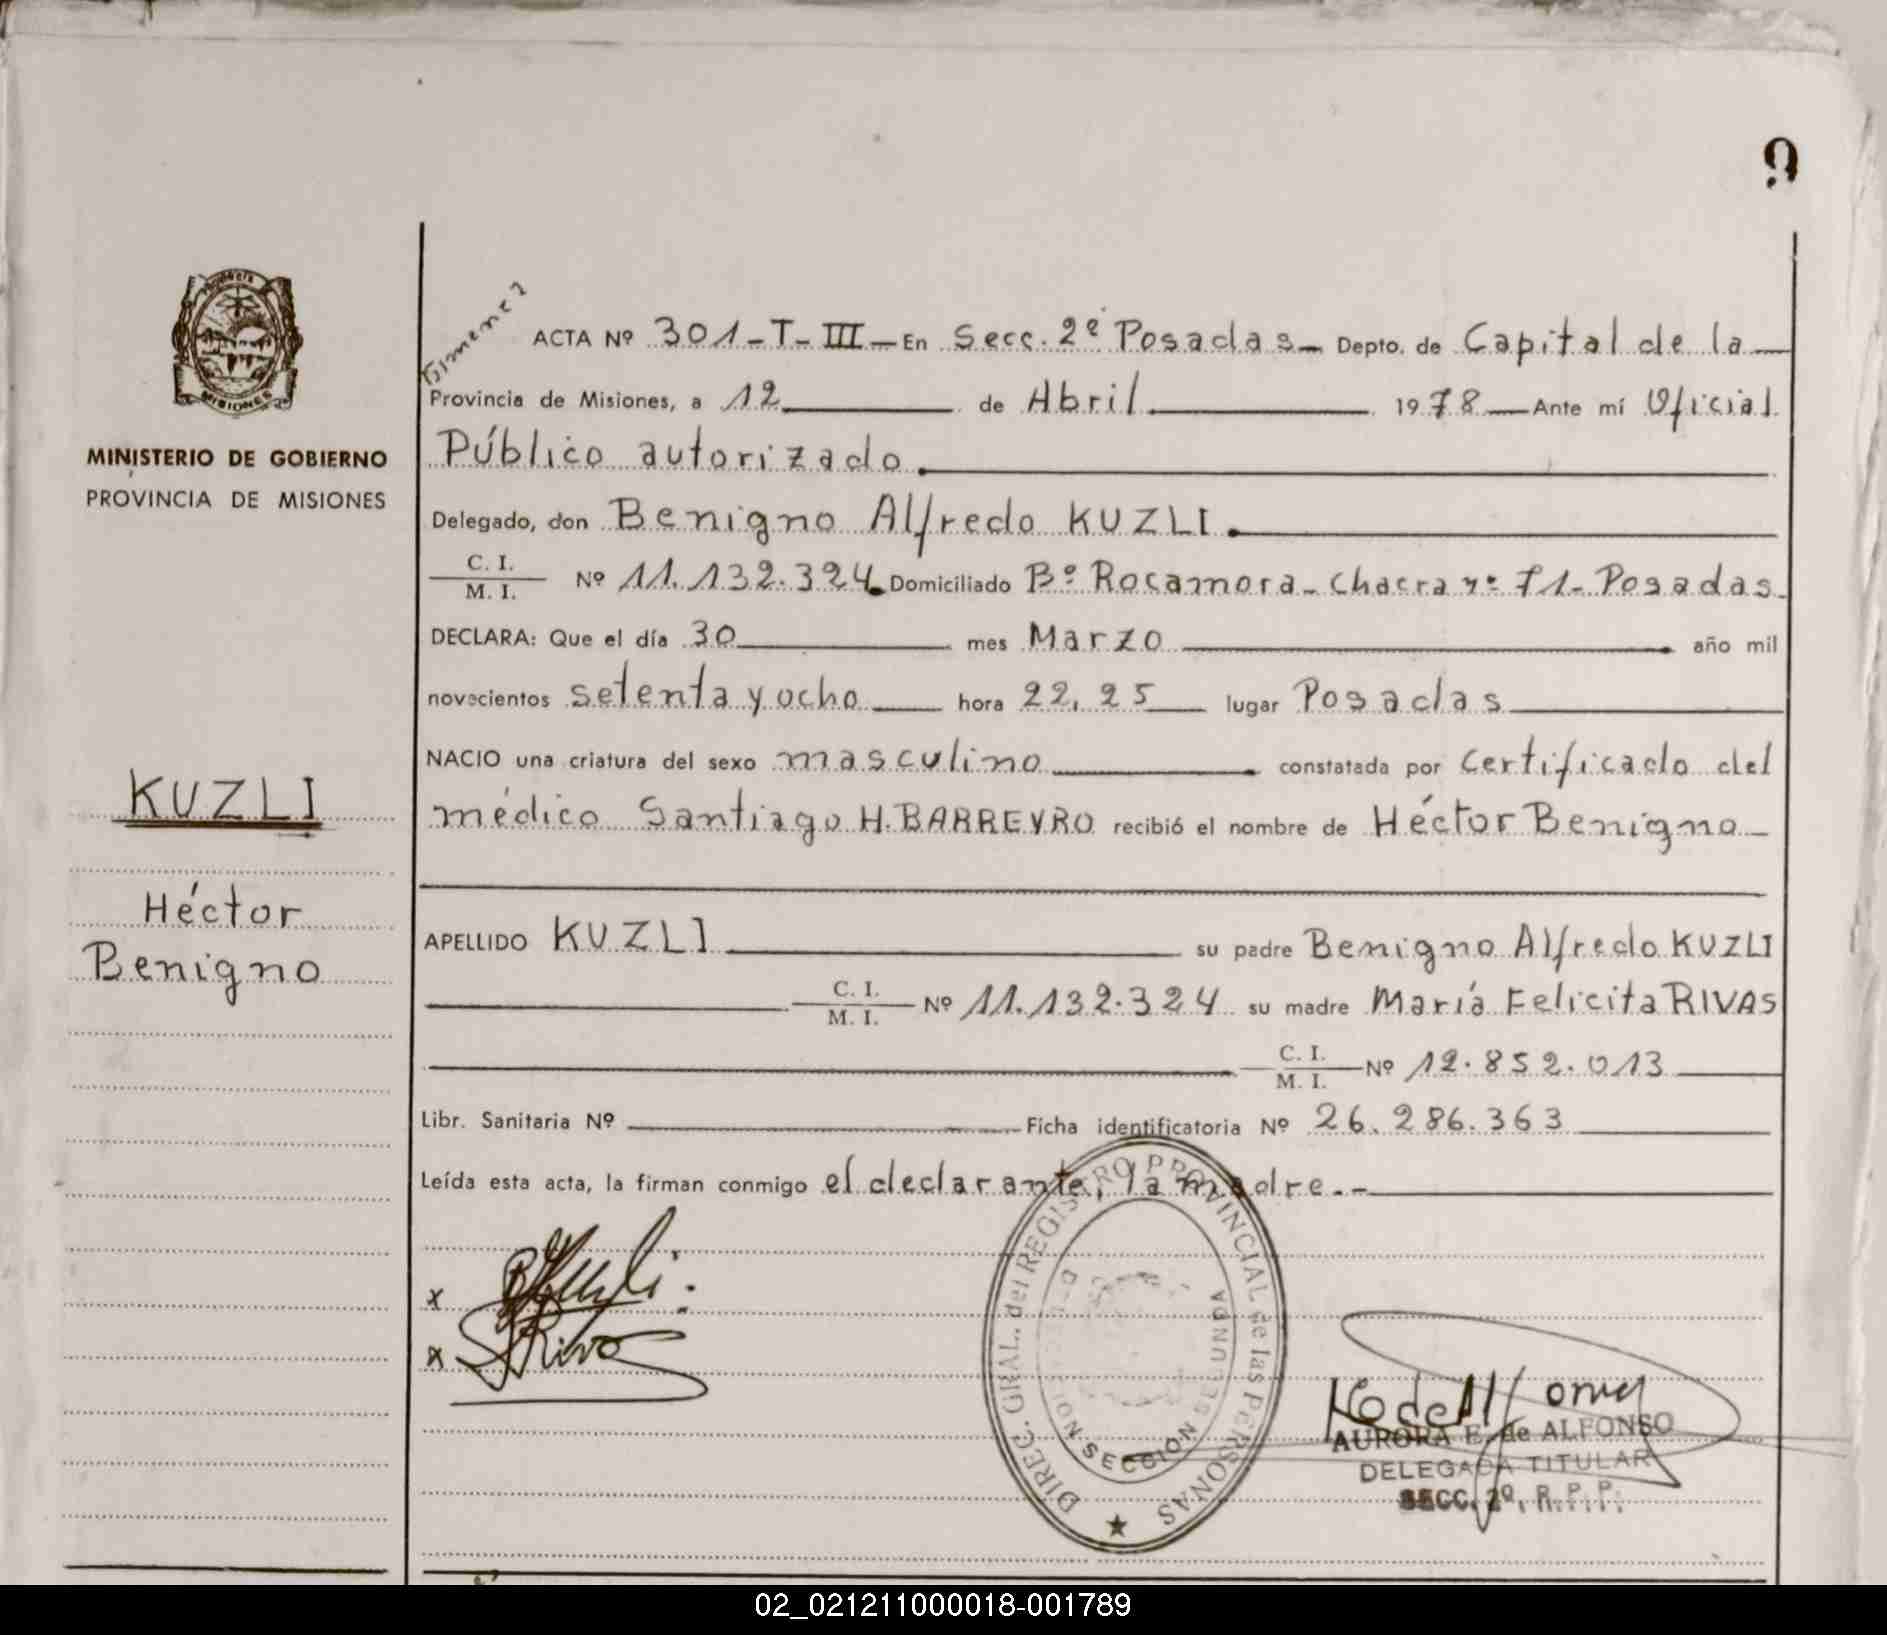 9
PROVINCIA
MISIONES
MINISTERIO DE GOBIERNO
PROVINCIA DE MISIONES
KUZLI
Héctor
Benigno
Gimenez
ACTA Nº 301-T-III- En Secc. 2ª Posadas- Depto. de Capital de la
Provincia de Misiones, a 12 de Abril 1978 Ante mí Oficial
Público autorizado.
Delegado, don Benigno Alfredo KUZLI.
C. I.
M. I. Nº 11.132.324. Domiciliado Bº Rocamora- Chacra nº 71- Posadas.
DECLARA: Que el día 30 mes Marzo año mil
novecientos setenta y ocho hora 22,25 lugar Posadas
NACIO una criatura del sexo masculino constatada por Certificado del
médico Santiago H. BARREYRO recibió el nombre de Héctor Benigno
APELLIDO KUZLI su padre Benigno Alfredo KUZLI
C. I.
M. I. Nº 11.132.324 su madre María Felicita RIVAS
C. I.
M. I. Nº 12.852.013
Libr. Sanitaria Nº Ficha identificatoria Nº 26.286.363
Leída esta acta, la firman conmigo el declarante, la madre.-
x
x Rivas
DIREC. GRAL. del REGISTRO PROVINCIAL de las PERSONAS
SECCION SEGUNDA
AURORA E. de ALFONSO
DELEGADA TITULAR
SECC. 2º, R. P. P.
02_021211000018-001789